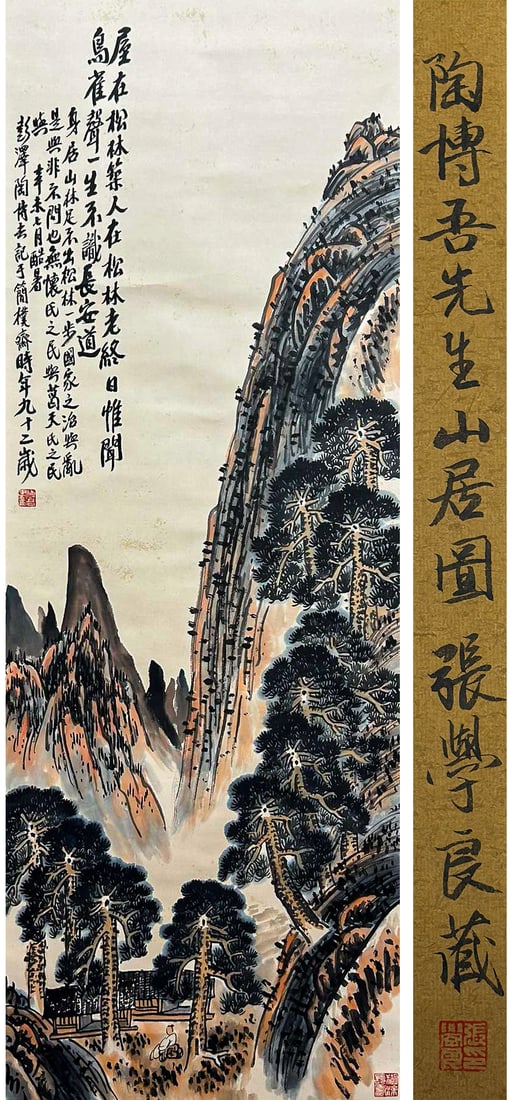 陶博吾先生山居圖 張學良藏
屋在松林築人在松林老終日惟聞
鳥雀聲一生不識長安道
身居山林足不出松林一步國家之治與亂
是與非不問也無懷氏之民與葛天氏之民
與 辛未月酷暑
彭澤陶博吾記于簡樸齋時年九十二歲